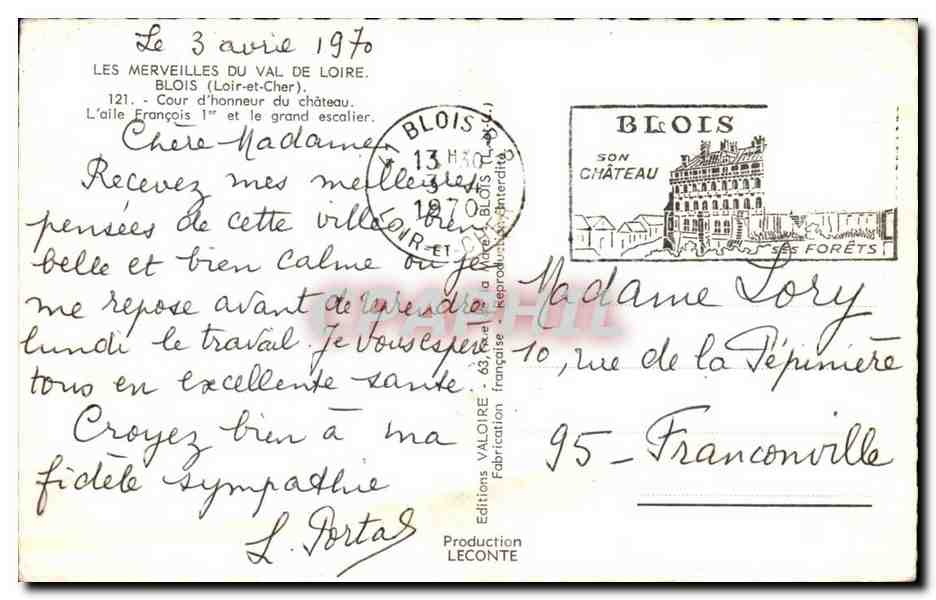 Le 3 avril 1970
LES MERVEILLES DU VAL DE LOIRE.
BLOIS (Loir-et-Cher).
121. - Cour d'honneur du château.
L'aile François 1er et le grand escalier.
Chère Madame,
Recevez mes meilleures
pensées de cette ville bien
belle et bien calme où je
me repose avant de reprendre
lundi le travail. Je vous espère
tous en excellente santé.
Croyez bien à ma
fidèle sympathie
L. Portal
41 BLOIS R.P.
13H30
3-4
1970
LOIR-ET-CHER
BLOIS
SON
CHÂTEAU
SES FORÊTS
Editions VALOIRE - 63, rue de la Mare - BLOIS
Fabrication française - Reproduction interdite
Madame Lory
10, rue de la Pépinière
95 - Franconville
Production
LECONTE
CPAPHIL